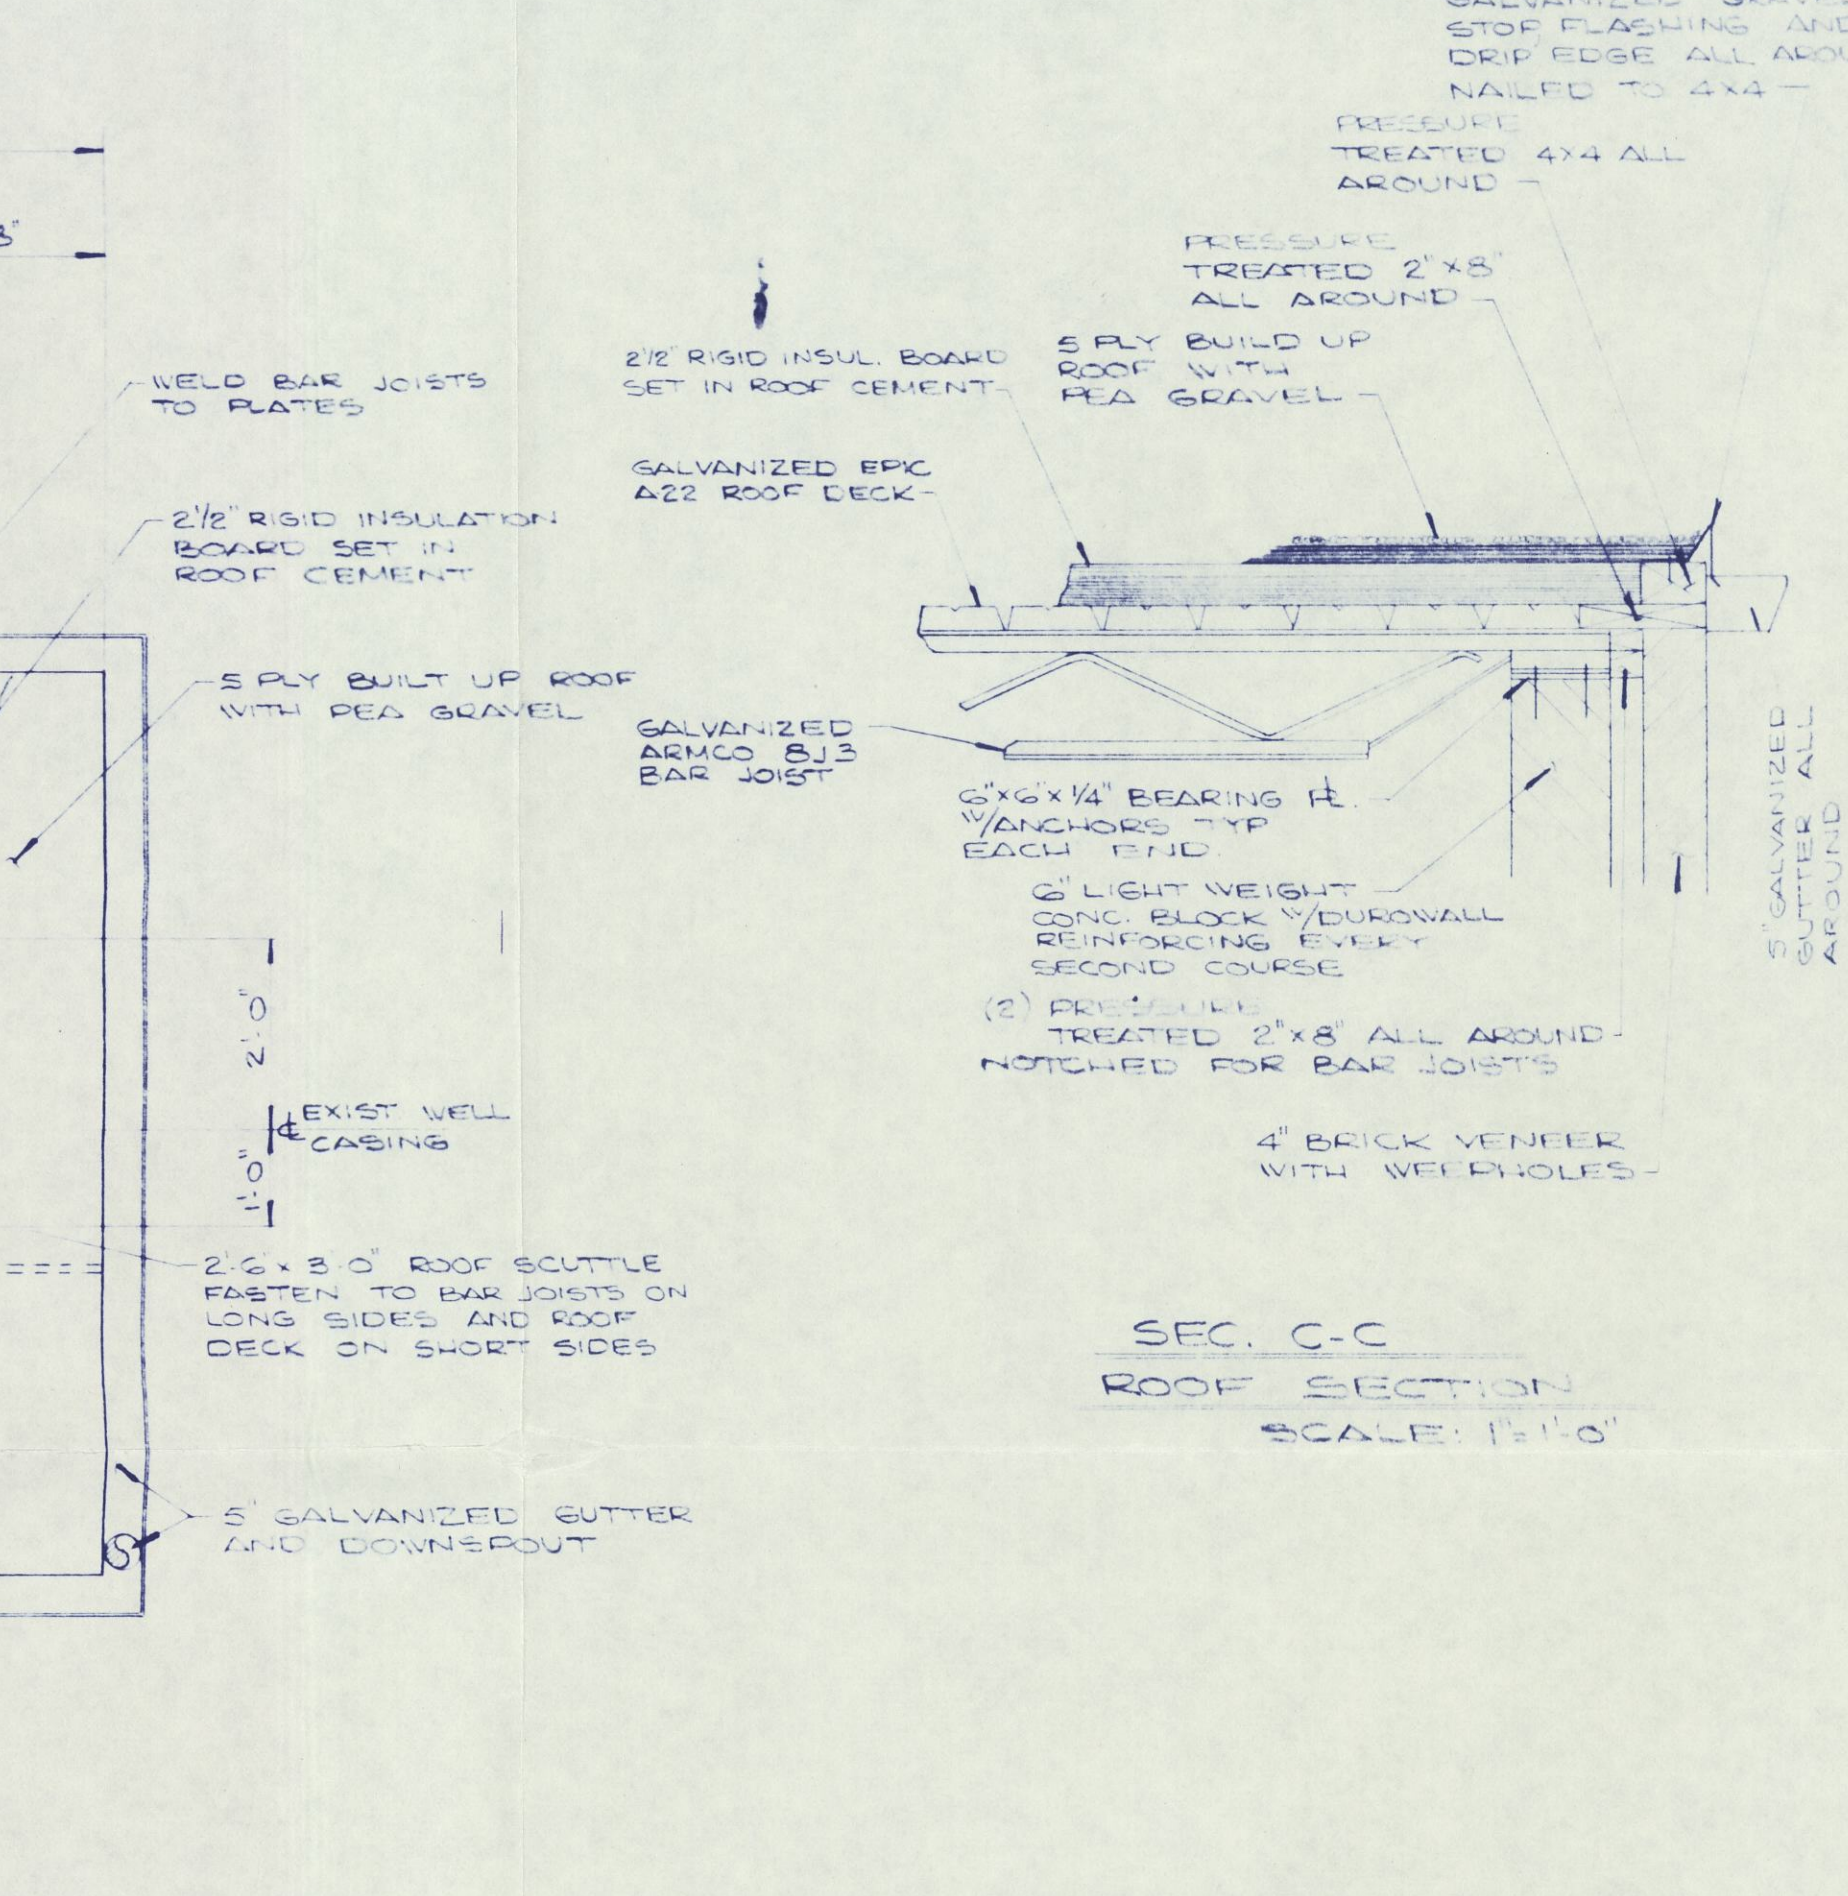 GALVANIZED GRAVE
STOP FLASHING AND
DRIP EDGE ALL AROU
NAILED TO 4X4
PRESSURE
TREATED 4X4 ALL
AROUND
3"
PRESSURE
TREATED 2"X8"
ALL AROUND
2 1/2" RIGID INSUL. BOARD
SET IN ROOF CEMENT
5 PLY BUILD UP
ROOF WITH
PEA GRAVEL
WELD BAR JOISTS
TO PLATES
GALVANIZED EPIC
A22 ROOF DECK
2 1/2" RIGID INSULATION
BOARD SET IN
ROOF CEMENT
5 PLY BUILT UP ROOF
WITH PEA GRAVEL
GALVANIZED
ARMCO 8J3
BAR JOIST
6"X6"X1/4" BEARING PL.
W/ANCHORS TYP
EACH END.
5" GALVANIZED
GUTTER ALL
AROUND
6" LIGHT WEIGHT
CONC. BLOCK W/DUROWALL
REINFORCING EVERY
SECOND COURSE
(2) PRESSURE
TREATED 2"X8" ALL AROUND
NOTCHED FOR BAR JOISTS
2'-0"
℄ EXIST WELL
CASING
1'-0"
4" BRICK VENEER
WITH WEEPHOLES
2'-6" X 3'-0" ROOF SCUTTLE
FASTEN TO BAR JOISTS ON
LONG SIDES AND ROOF
DECK ON SHORT SIDES
SEC. C-C
ROOF SECTION
SCALE: 1"=1'-0"
5" GALVANIZED GUTTER
AND DOWNSPOUT